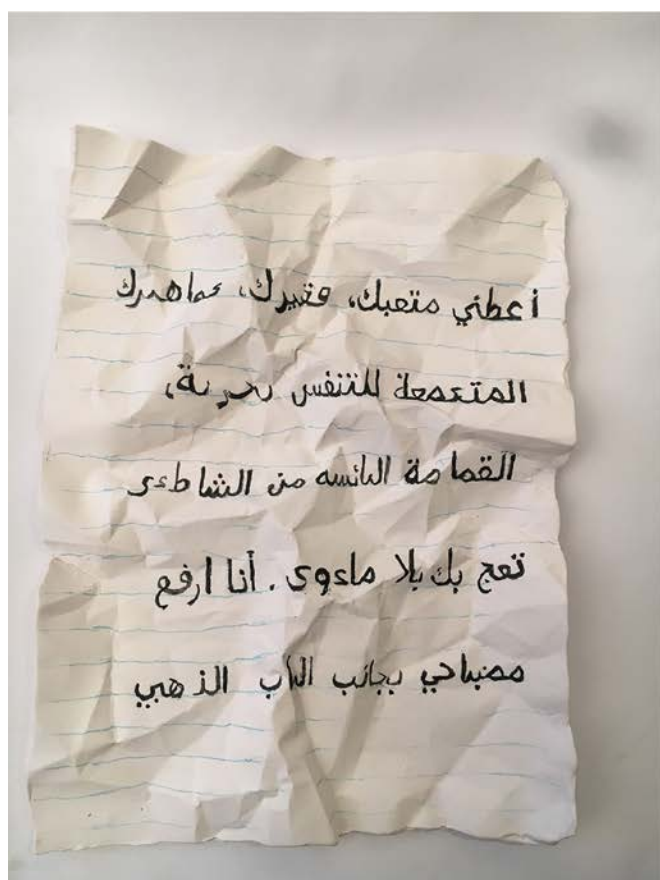 أعطني متعبك، فقيرك، جماهيرك
المتجمعة للتنفس بحرية،
القمامة البائسه من الشاطىء
تعج بك بلا مأوى. أنا ارفع
مصباحي بجانب الباب الذهبي